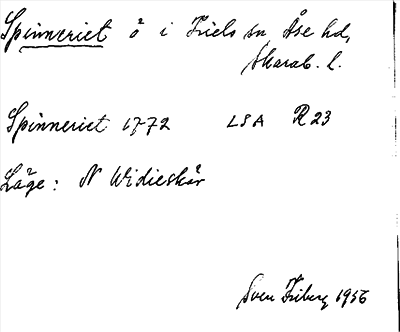 Spinneriet ö i Friels sn Åse hd,
Skarab. l.
Spinneriet 1772 LSA R 23
Läge: N Widieskär
Sven Friberg 1956